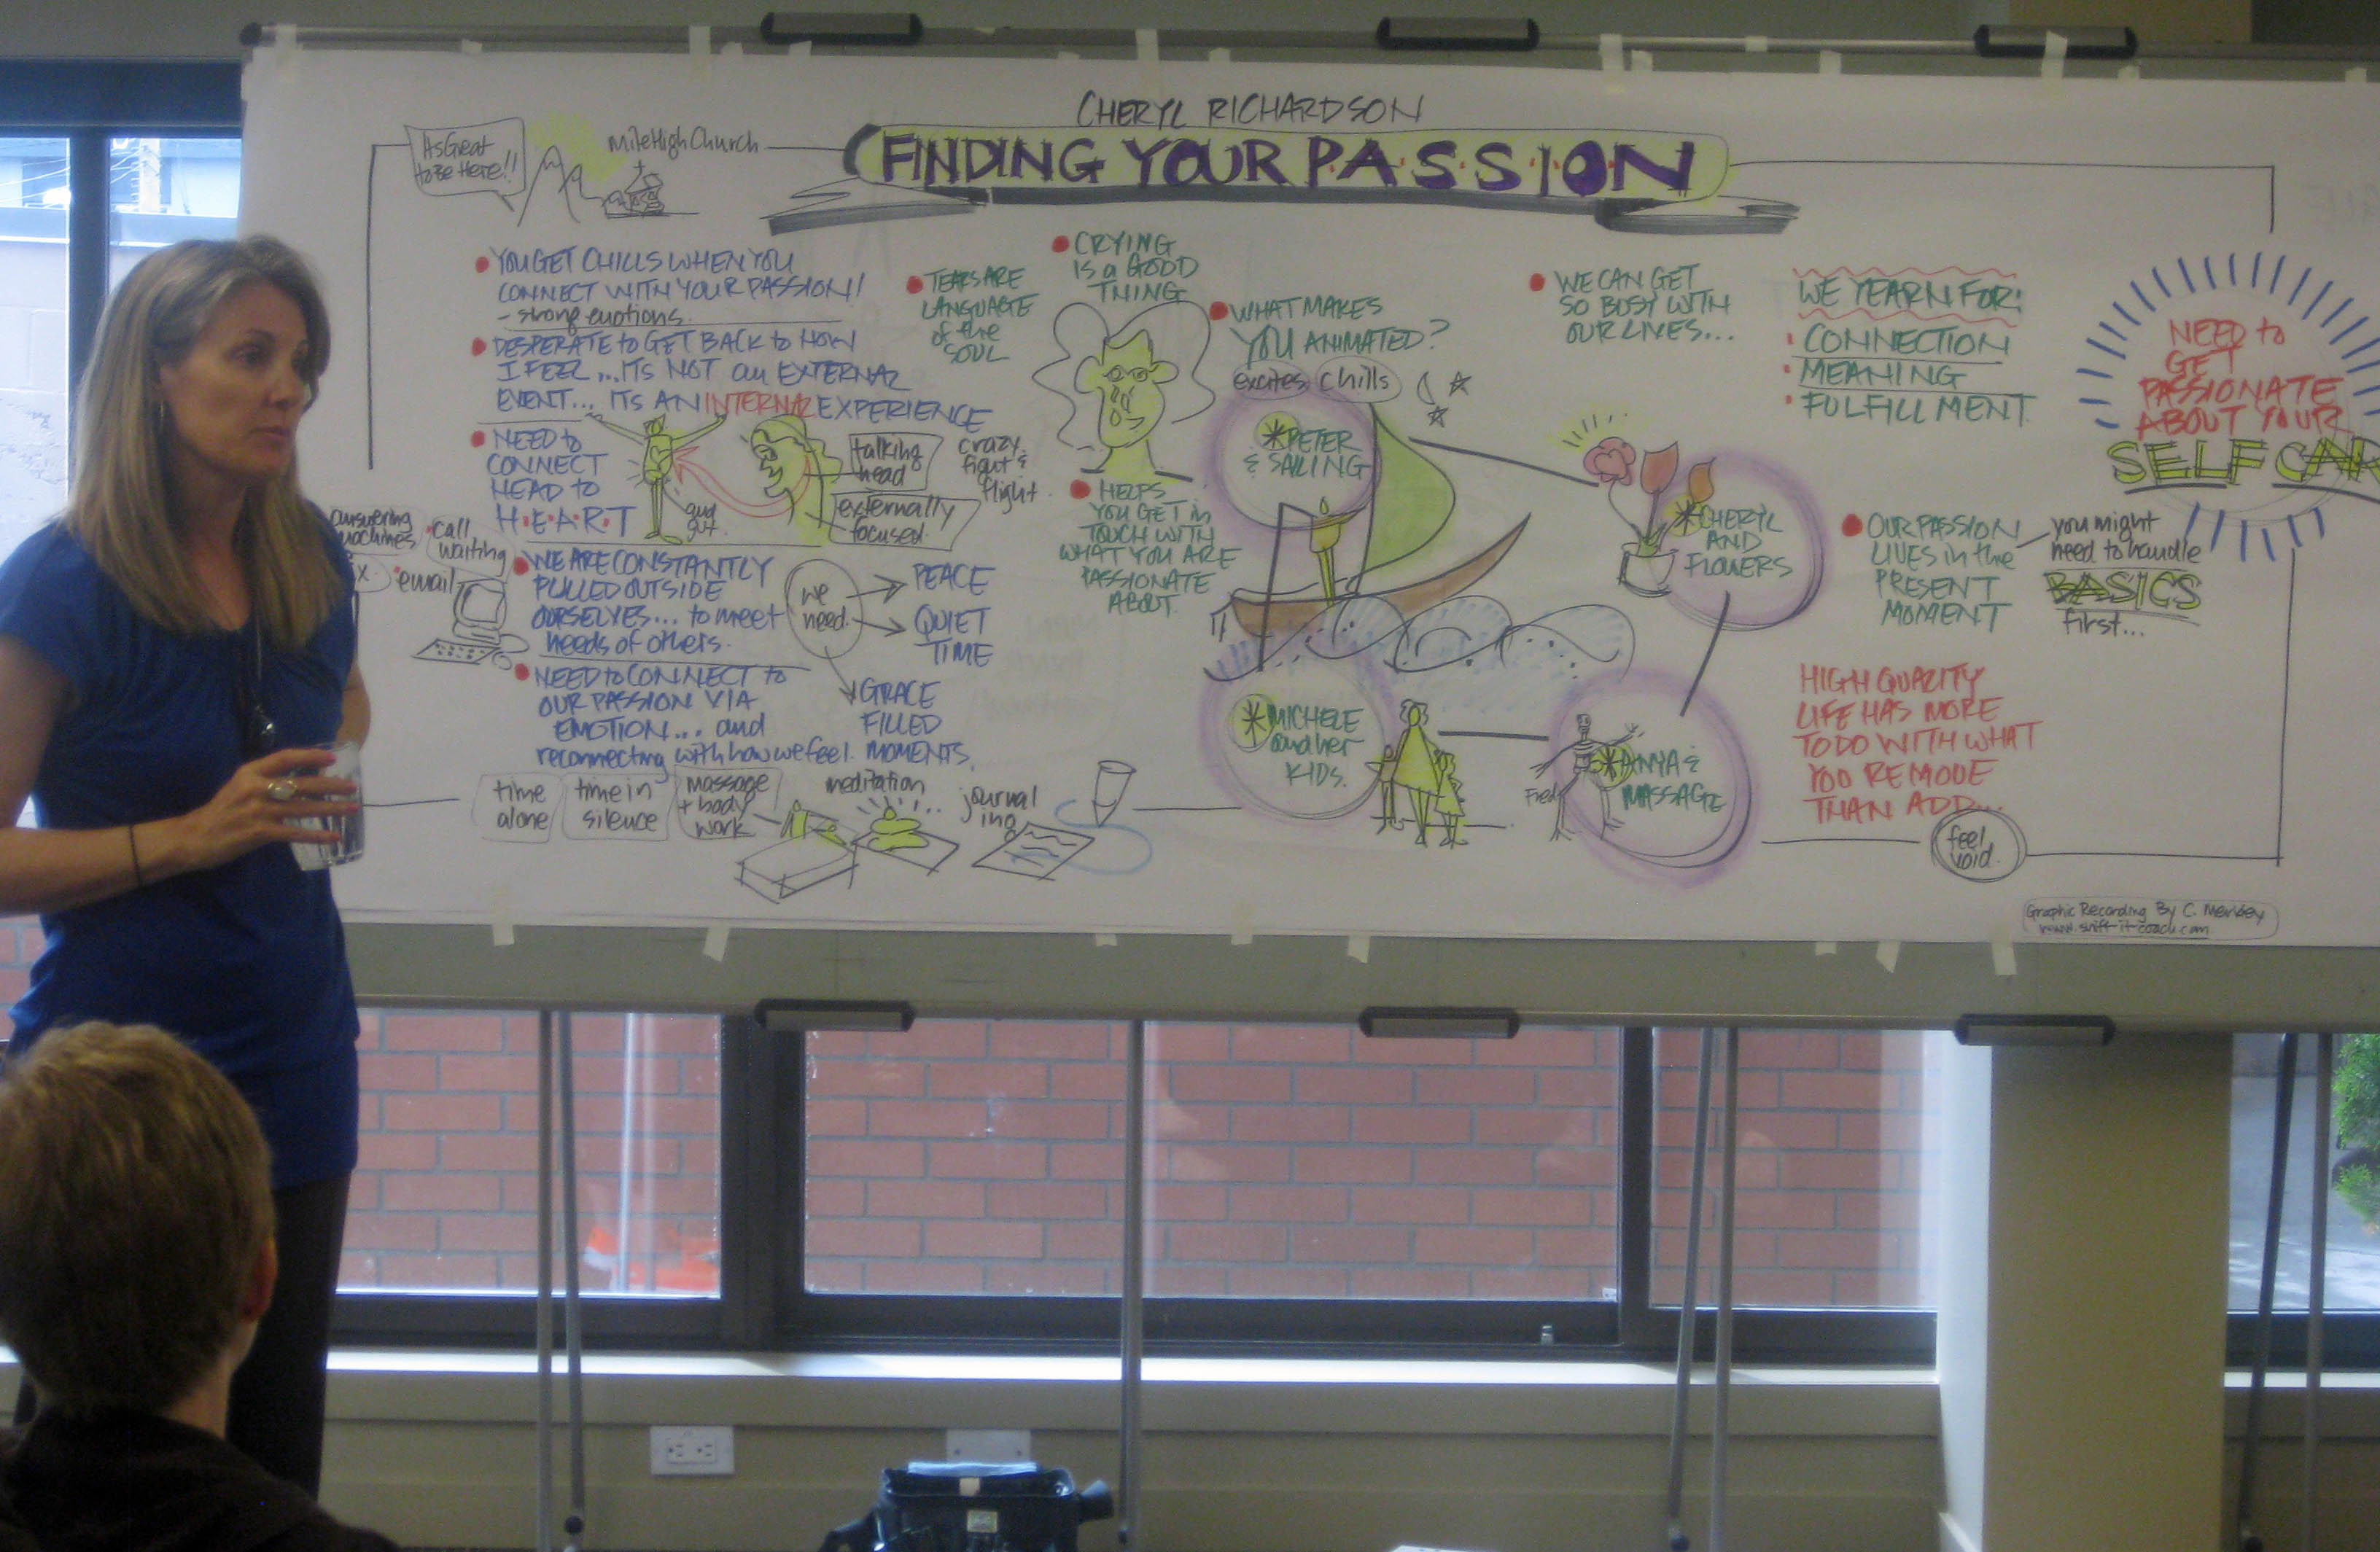 CHERYL RICHARDSON
FINDING YOUR P.A.S.S.I.O.N
ItsGreat
to Be Here!!
Mile High Church
YOU GET CHILLS WHEN YOU
CONNECT WITH YOUR PASSION!
- strong emotions.
DESPERATE to GET BACK to HOW
I FEEL ... ITS NOT an EXTERNAL
EVENT... ITS AN INTERNAL EXPERIENCE
NEED to
CONNECT
HEAD to
H.E.A.R.T
talking
head
crazy.
fight &
flight.
externally
focused.
gut.
answering
machines
call
waiting
email
WE ARE CONSTANTLY
PULLED OUTSIDE
OURSELVES... to meet
needs of others.
we
need.
PEACE
QUIET
TIME
GRACE
FILLED
MOMENTS.
NEED to CONNECT to
OUR PASSION VIA
EMOTION... and
reconnecting with how we feel.
time
alone
time in
silence
massage
+ body
work
meditation
journal
ing
TEARS ARE
LANGUAGE
of the
SOUL
CRYING
is a GOOD
THING
HELPS
YOU GET in
TOUCH WITH
WHAT YOU ARE
PASSIONATE
ABOUT.
WHAT MAKES
YOU ANIMATED?
excites chills
PETER
& SAILING
WE CAN GET
SO BUSY WITH
OUR LIVES...
CHERYL
AND
FLOWERS
MICHELE
and her
KIDS.
Fred
ANYA &
MASSAGE
WE YEARN FOR:
CONNECTION
MEANING
FULFILLMENT
OUR PASSION
LIVES in the
PRESENT
MOMENT
you might
need to handle
BASICS
first...
NEED to
GET
PASSIONATE
ABOUT YOUR
SELF CAR
HIGH QUALITY
LIFE HAS MORE
TO DO WITH WHAT
YOU REMOVE
THAN ADD...
feel
void.
Graphic Recording By C. Merkley